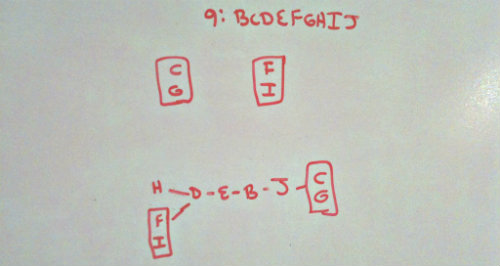 9: BCDEFGHIJ
C F
G I
H - D - E - B - J - C
G
F
I